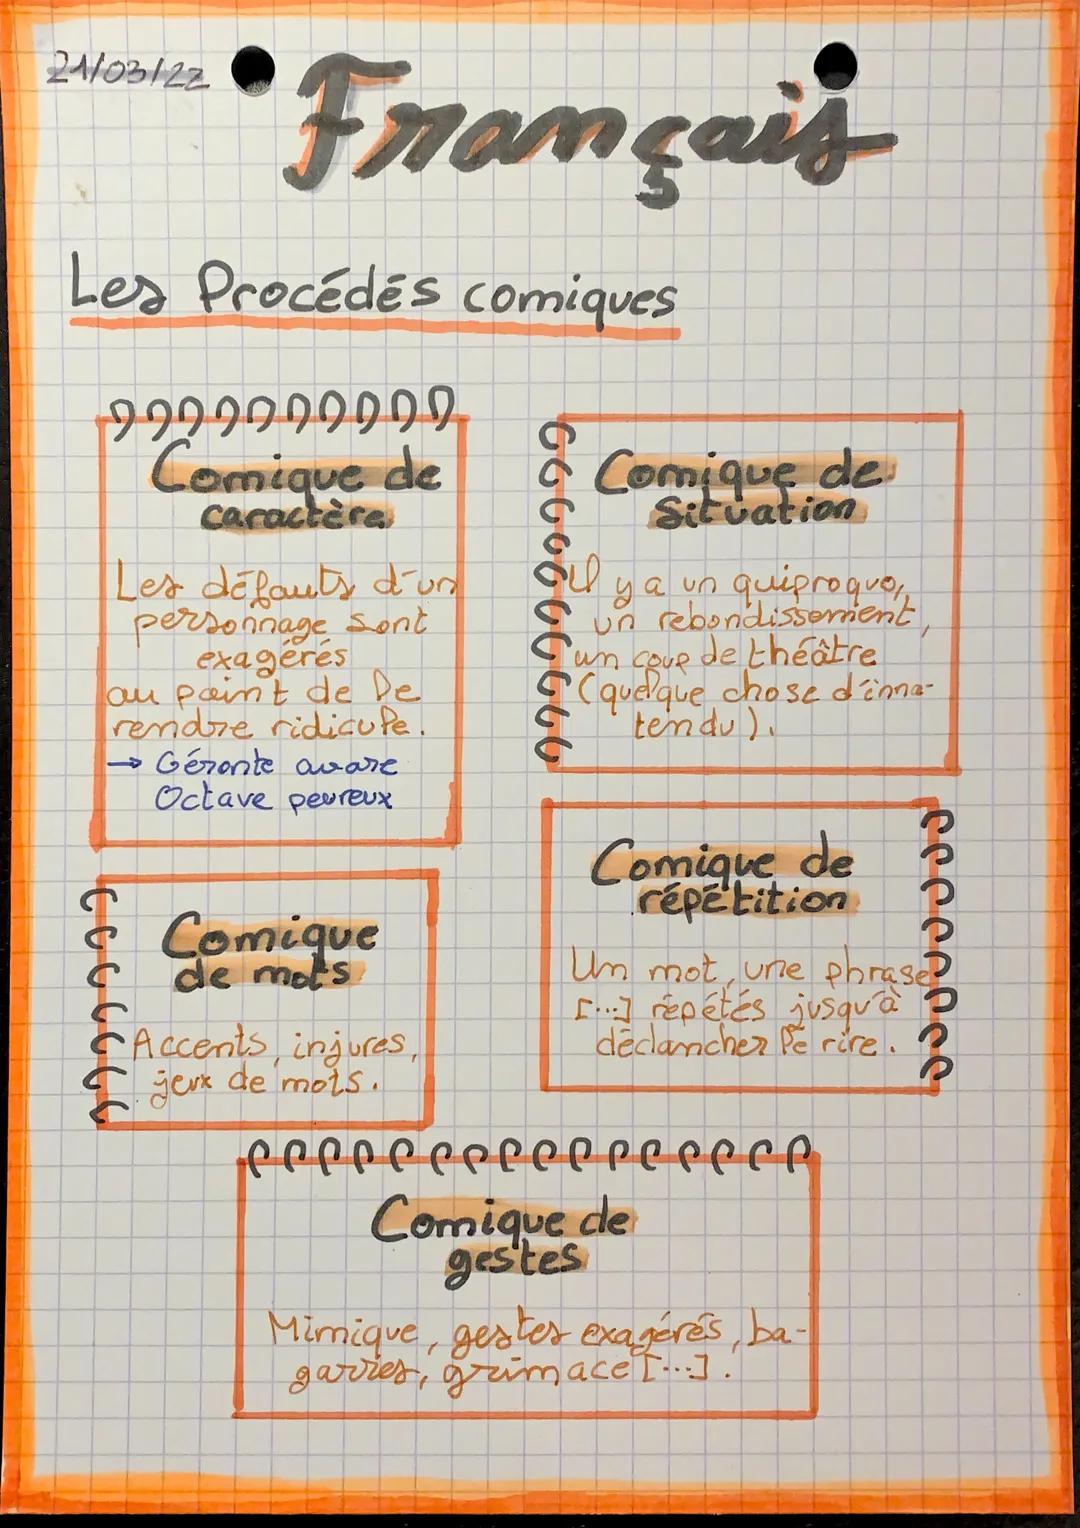 21/03/22
Français
Les Procédés comiques
Comique de
caractère
Les défauts d'un
personnage sont
exagérés
au point de le
rendre ridicule.
→ Géronte avare
Octave peureux
Comique de
Situation
Il y a un quiproquo,
un rebondissement,
un coup de théâtre
(quelque chose d'inna-
tendu).
Comique
de mots
Accents, injures,
jeux de mots.
Comique de
répétition
Un mot, une phrase
[...] répétés jusqu'à
déclancher le rire.
Comique de
gestes
Mimique, gestes exagérés, ba-
garres, grimace [...].